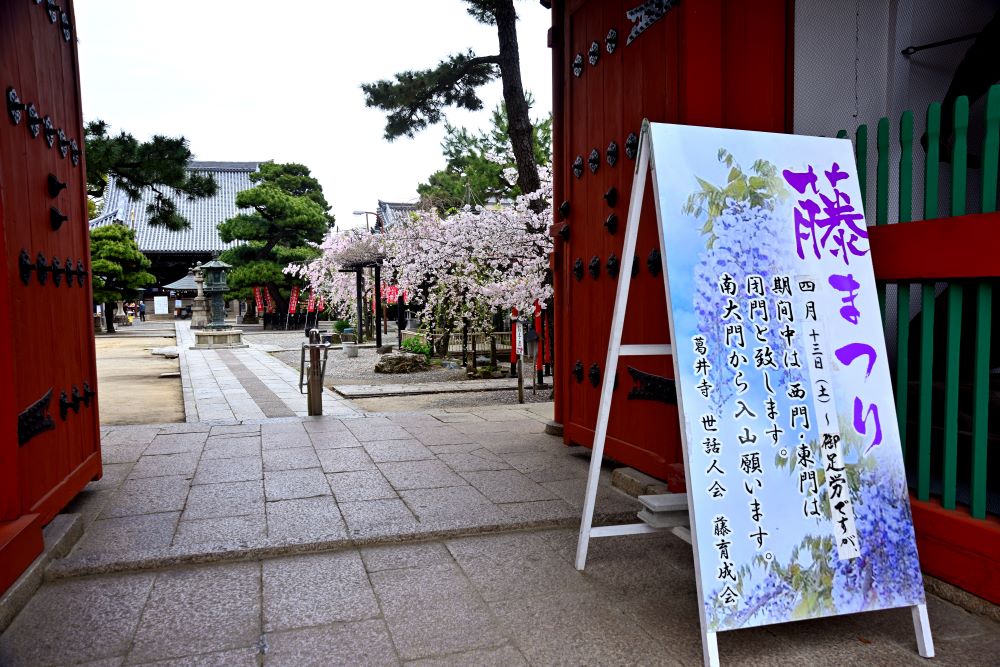 藤まつり
四月十三日（土）～御足労ですが、
期間中は西門・東門は
閉門と致します。
南大門から入山願います。
葛井寺 世話人会 藤育成会